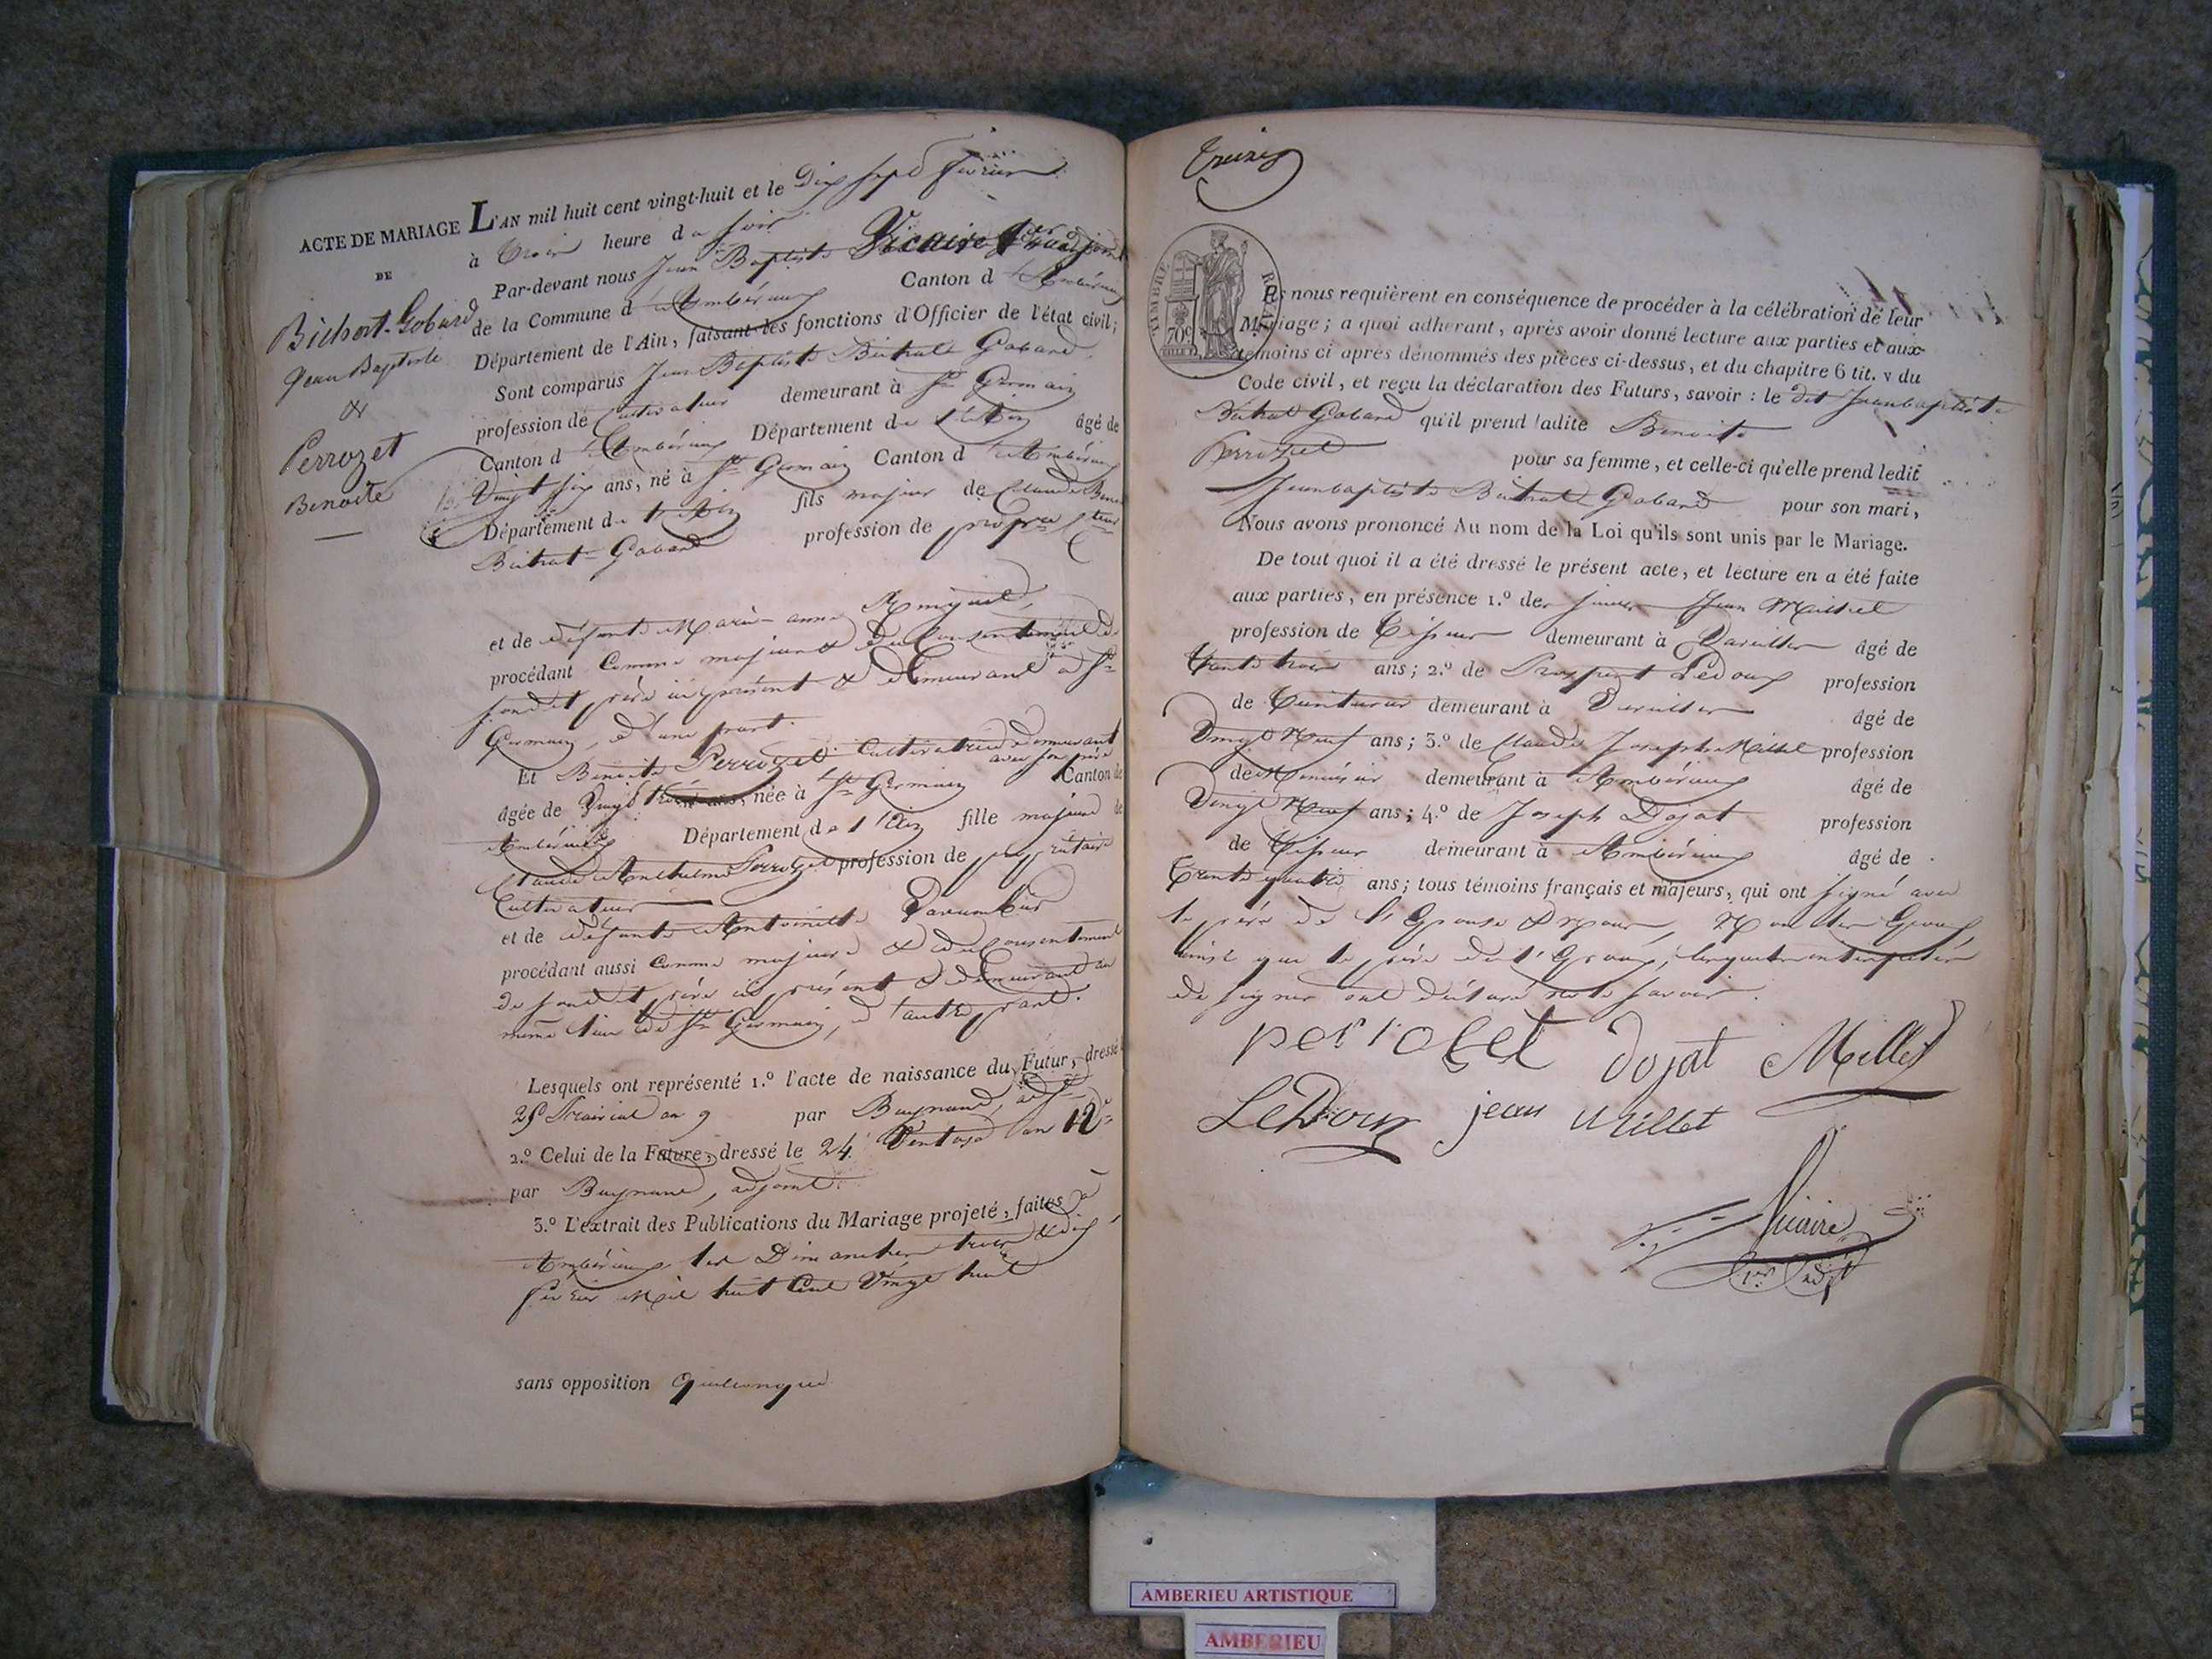 ACTE DE MARIAGE
DE
Bichat-Gobard
Jean Baptiste
&
Perrozet
Benoite
L'AN mil huit cent vingt-huit et le Dix sept février
à trois heure du soir
Par-devant nous Jean Baptiste Vicaire
de la Commune d'Ambérieux Canton d'Ambérieux
Département de l'Ain, faisant les fonctions d'Officier de l'état civil;
Sont comparus Jean Baptiste Gobard
profession de Cultivateur demeurant à St Germain
Canton d'Ambérieux Département de l'Ain âgé de
Vingt six ans, né à St Germain Canton d'Ambérieux
Département de l'Ain fils majeur de Claude
Gobard profession de
et de défunte Marie-anne
procédant Comme majeur & du Consentement de
sondit père ici présent & demeurant à St
Germain, d'une part.
Et Benoite Perrozet Cultivatrice demeurant
avec son père
âgée de Vingt trois ans, née à St Germain Canton de
Ambérieux Département de l'Ain fille majeure de
Claude Anthelme Perrozet profession de propriétaire
Cultivateur
et de défunte Antoinette
procédant aussi Comme majeure & du Consentement
de sondit père ici présent & demeurant au
même lieu de St Germain, d'autre part.
Lesquels ont représenté 1.º l'acte de naissance du Futur, dressé
Prairial an 9 par
2.º Celui de la Future, dressé le 24 Ventose an 12
par adjoint.
3.º L'extrait des Publications du Mariage projeté, faites à
Ambérieux les Dimanches trois & dix
février Mil huit Cent Vingt huit
sans opposition quelconque
treize
TIMBRE ROYAL
70c
Ils nous requièrent en conséquence de procéder à la célébration de leur
Mariage; a quoi adherant, après avoir donné lecture aux parties et aux
témoins ci après dénommés des pièces ci-dessus, et du chapitre 6 tit. v du
Code civil, et reçu la déclaration des Futurs, savoir: le dit Jeanbaptiste
Gobard qu'il prend ladite Benoite
Perrozet pour sa femme, et celle-ci qu'elle prend ledit
Jeanbaptiste Gobard pour son mari,
Nous avons prononcé Au nom de la Loi qu'ils sont unis par le Mariage.
De tout quoi il a été dressé le présent acte, et lecture en a été faite
aux parties, en présence 1.º de Jean
profession de Tisseur demeurant à âgé de
trente trois ans; 2.º de Prosper Ledoux profession
de Teinturier demeurant à âgé de
Vingt Neuf ans; 3.º de Claude Joseph Millet profession
de Menuisier demeurant à Ambérieux âgé de
Vingt Neuf ans; 4.º de Joseph Dojat profession
de Tisseur demeurant à Ambérieux âgé de
Trente quatre ans; tous témoins français et majeurs, qui ont signé avec
le père de l'Epouse & nous, Non les Epoux
ainsi que le père de l'Epoux, lesquels interpellés
de signer ont déclaré ne le savoir.
perrozet dojat Millet
LeDoux jean Millet
Vicaire
1er adjt
AMBERIEU ARTISTIQUE
AMBERIEU